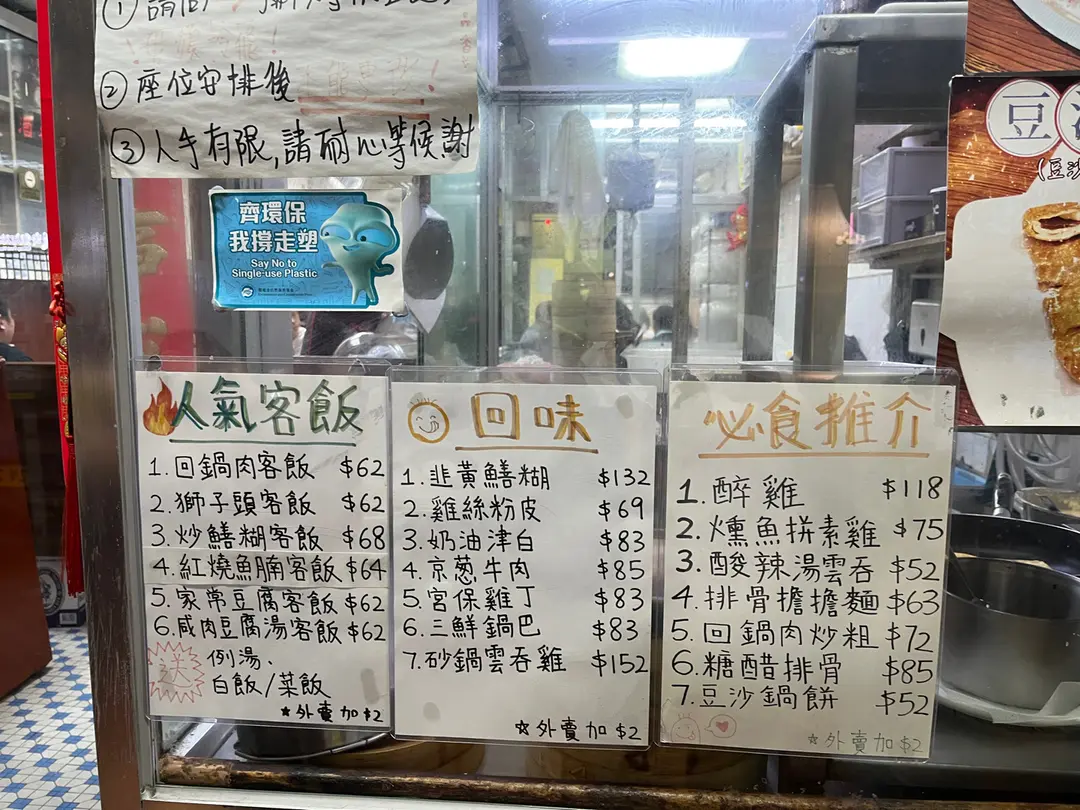 ① 請
② 座位安排後
③ 人手有限,請耐心等候謝
齊環保
我撐走塑
Say No to
Single-use Plastic
豆
(豆沙
人氣客飯
1. 回鍋肉客飯 $62
2. 獅子頭客飯 $62
3. 炒鱔糊客飯 $68
4. 紅燒魚腩客飯 $64
5. 家常豆腐客飯 $62
6. 咸肉豆腐湯客飯 $62
送 例湯、
白飯/菜飯
☆外賣加$2
回味
1. 韭黃鱔糊 $132
2. 雞絲粉皮 $69
3. 奶油津白 $83
4. 京葱牛肉 $85
5. 宮保雞丁 $83
6. 三鮮鍋巴 $83
7. 砂鍋雲吞雞 $152
☆外賣加$2
必食推介
1. 醉雞 $118
2. 燻魚拼素雞 $75
3. 酸辣湯雲吞 $52
4. 排骨擔擔麵 $63
5. 回鍋肉炒粗 $72
6. 糖醋排骨 $85
7. 豆沙鍋餅 $52
☆外賣加$2